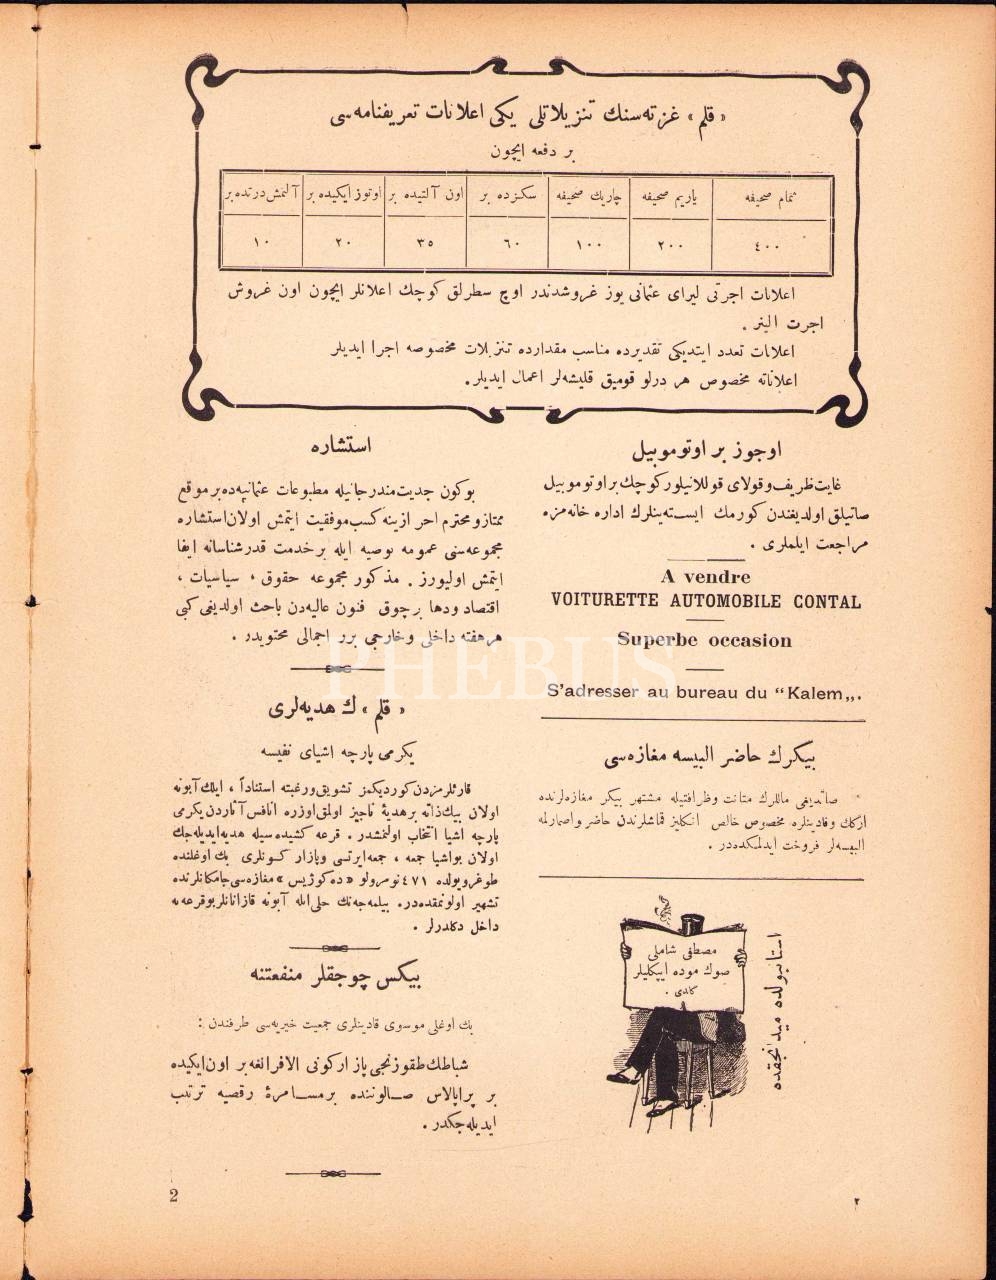 «قلم» غزته‌سنك تنزیلاتلی یكی اعلانات تعریفنامه‌سی
بر دفعه ایچون
تمام صحیفه یاریم صحیفه چاریك صحیفه سكزده بر اون آلتیده بر اوتوز ایكیده بر آلتمش درتده بر
٤٠٠ ٢٠٠ ١٠٠ ٦٠ ٣٥ ٢٠ ١٠
اعلانات اجرتی لیرای عثمانی یوز غروشدندر اوچ سطرلق كوچك اعلانلر ایچون اون غروش
اجرت الینر .
اعلانات تعدد ایتدیكی تقدیرده مناسب مقدارده تنزیلات مخصوصه اجرا ایدیلر
اعلاناته مخصوص هر درلو قومیق قلیشه‌لر اعمال ایدیلر.
اوجوز بر اوتوموبیل
غایت ظریف و قولای قوللانیلور كوچك بر اوتوموبیل
صاتیلق اولدیغندن كورمك ایسته‌ینلرك اداره خانه‌مزه
مراجعت ایلملری .
A vendre
VOITURETTE AUTOMOBILE CONTAL
Superbe occasion
S'adresser au bureau du “Kalem„.
بیكرك حاضر البیسه مغازه‌سی
صاتدیغی ماللرك متانت و ظرافتیله مشتهر بیكر مغازه‌لرنده
اركك و قادینلره مخصوص خالص انكلیز قماشلرندن حاضر و اصمارلمه
البیسه‌لر فروخت ایدلمكده‌در .
مصطفی شاملی
صوك موده ایپكلیلر
كلدی .
استانبولده میدانجقده
استشاره
بوكون جدیت مندرجاتیله مطبوعات عثمانیه‌ده بر موقع
ممتاز و محترم احرازینه كسب موفقیت ایتمش اولان استشاره
مجموعه‌سنی عمومه توصیه ایله بر خدمت قدرشناسانه ایفا
ایتمش اولیورز . مذكور مجموعه حقوق ، سیاسیات ،
اقتصاد و دها برچوق فنون عالیه‌دن باحث اولدیغی كبی
هر هفته داخلی و خارجی برر اجمالی محتویدر .
«قلم» ك هدیه‌لری
یكرمی پارچه اشیای نفیسه
قارئلرمزدن كوردیكمز تشویق و رغبته استناداً ، ایلك آبونه
اولان بیك ذاته بر هدیهٔ ناچیز اولمق اوزره انافس آثاردن یكرمی
پارچه اشیا انتخاب اولنمشدر . قرعه كشیده‌سیله هدیه ایدیله‌جك
اولان بو اشیا جمعه ، جمعه ایرتسی و پازار كونلری بك اوغلنده
طوغرو یولده ٤٧١ نومرولو «ده كوژیس» مغازه‌سی جامكانلرنده
تشهیر اولونمقده‌در. بیلمه‌جه‌نك حلی ایله آبونه قازانانلر بو قرعه‌یه
داخل دكلدرلر .
بیكس چوجقلر منفعتنه
بك اوغلی موسوی قادینلری جمعیت خیریه‌سی طرفندن :
شباطك طقوزنجی پازار كونی الافرانغه بر اون ایكیده
بر پراپالاس صالوننده بر مسامرهٔ رقصیه ترتیب
ایدیله‌جكدر .
2
٢